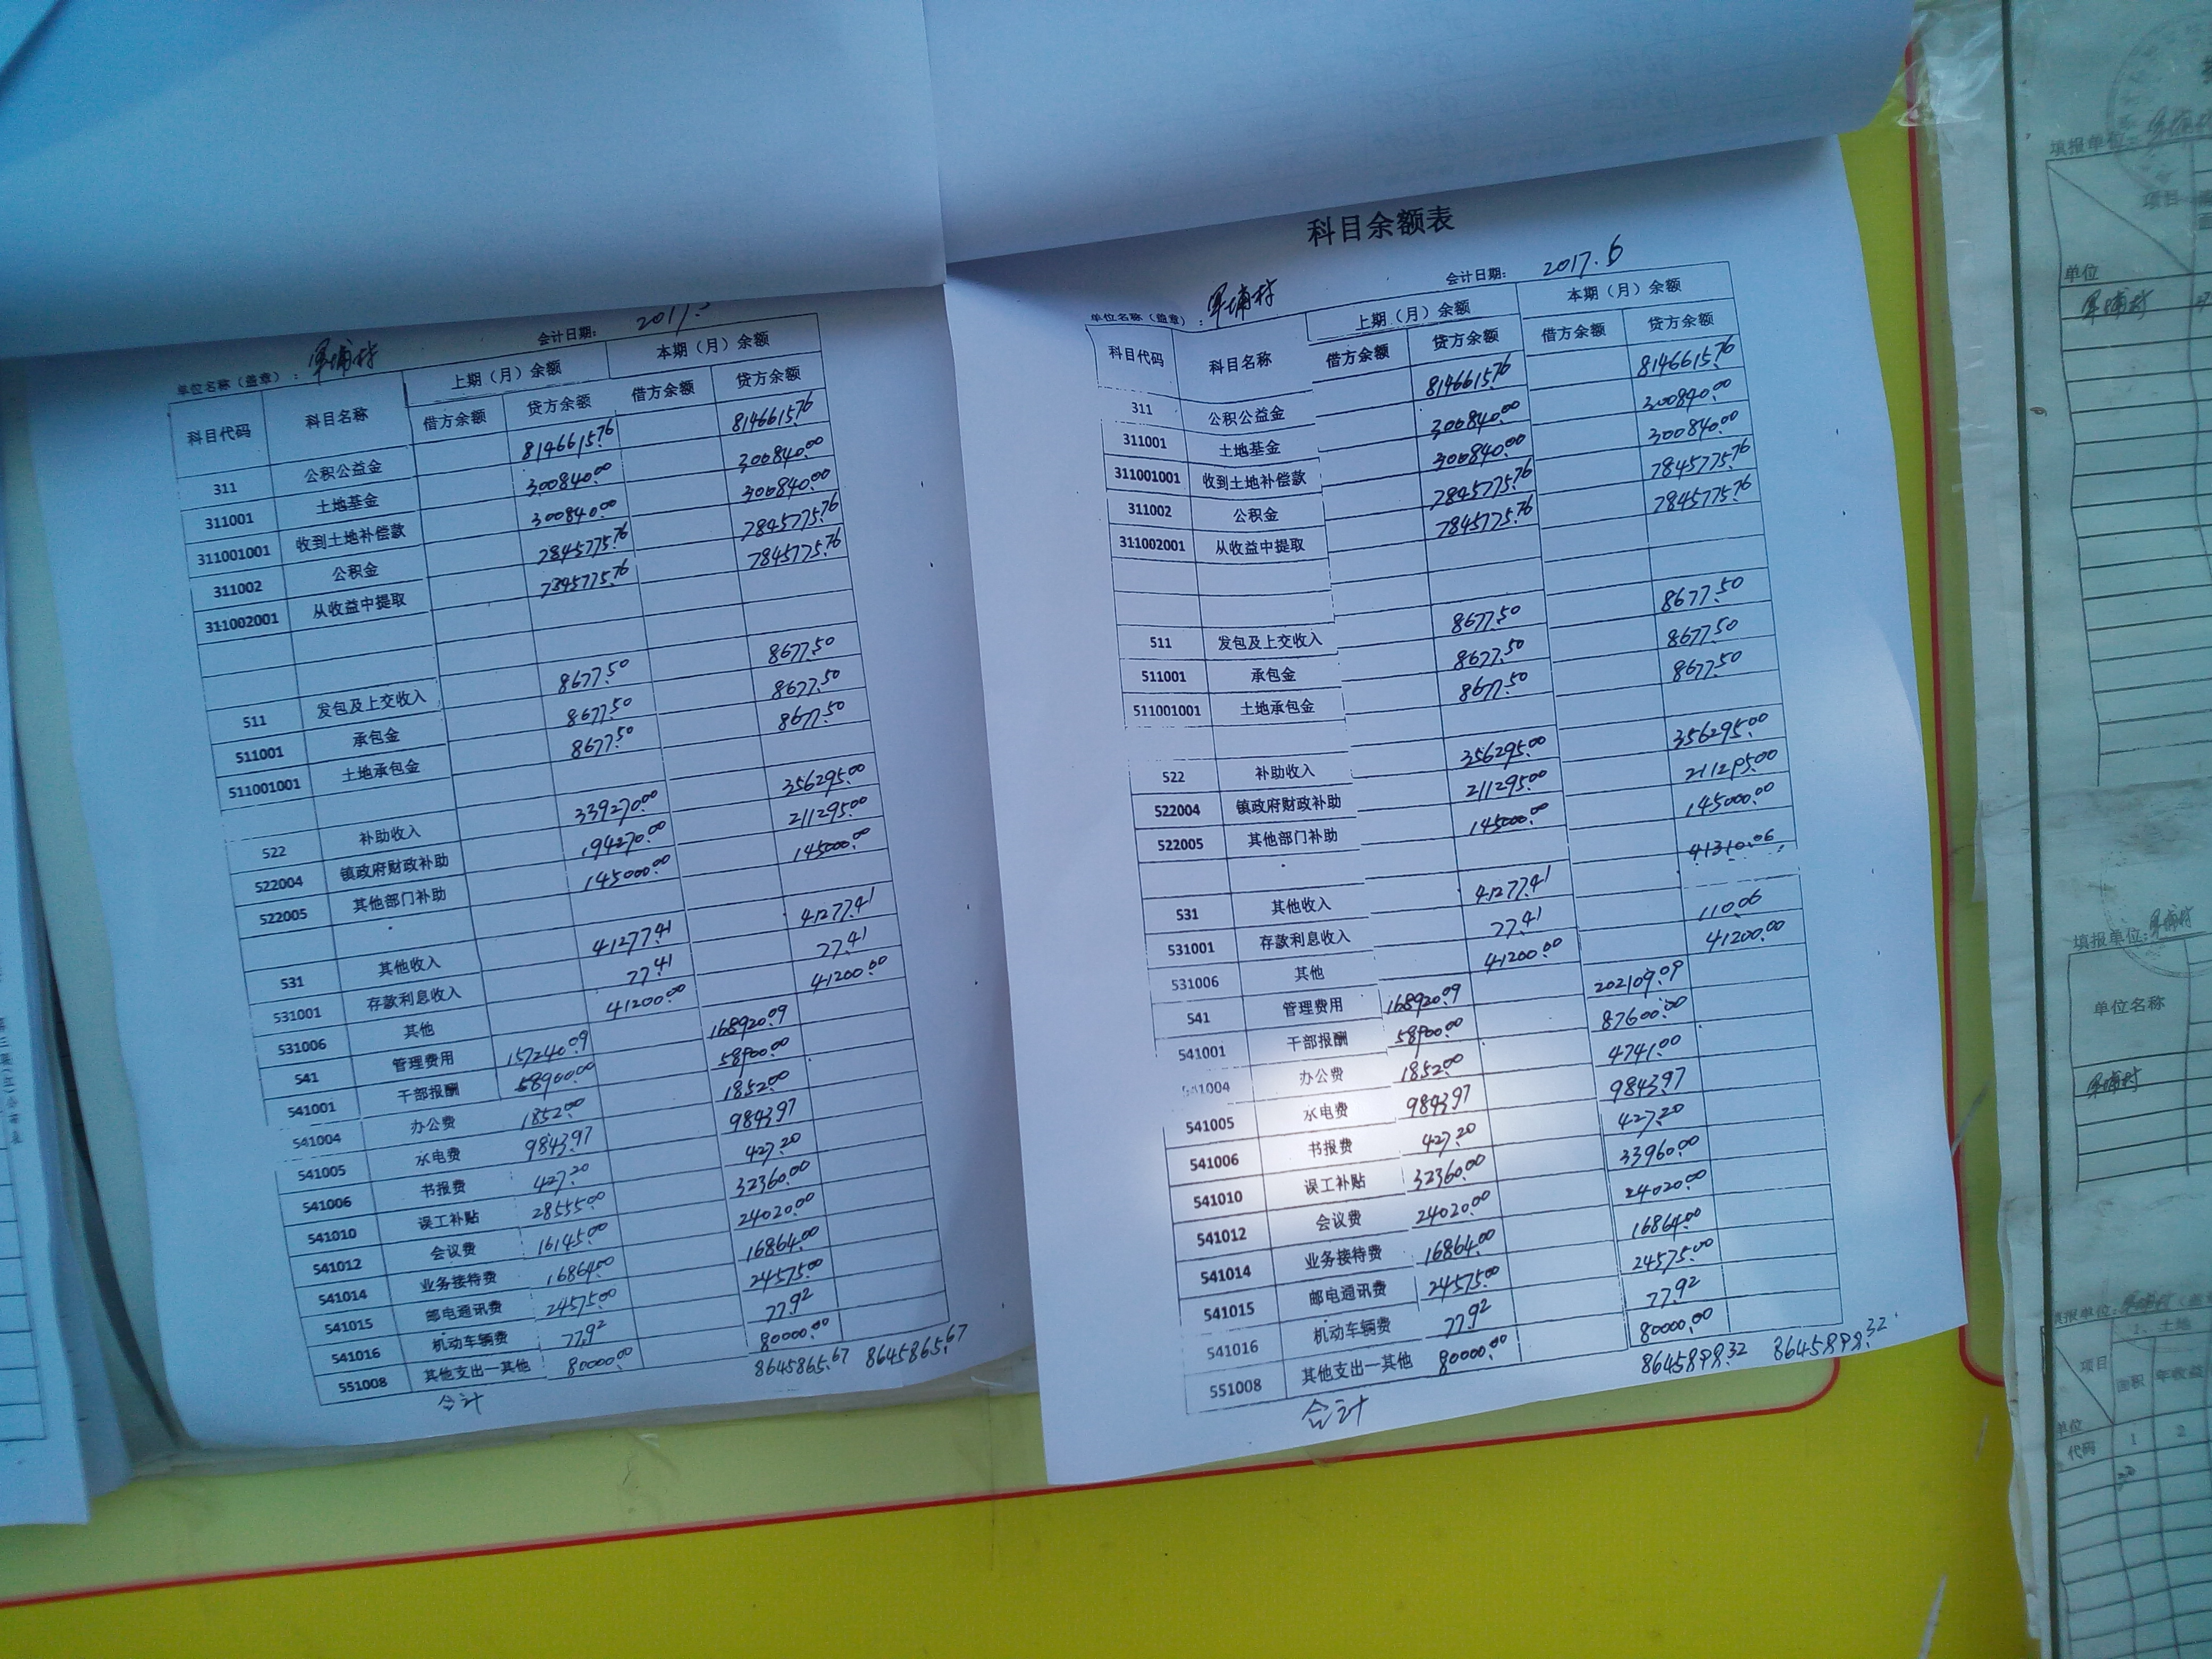 单位名称（盖章）： 军埔村 会计日期：
科目代码 科目名称 上期（月）余额 本期（月）余额
借方余额 贷方余额 借方余额 贷方余额
311 公积公益金 8146615.76 8146615.76
311001 土地基金 300840.00 300840.00
311001001 收到土地补偿款 300840.00 300840.00
311002 公积金 7845775.76 7845775.76
311002001 从收益中提取 7845775.76 7845775.76
511 发包及上交收入 8677.50 8677.50
511001 承包金 8677.50 8677.50
511001001 土地承包金 8677.50 8677.50
522 补助收入 339270.00 356295.00
522004 镇政府财政补助 194270.00 211295.00
522005 其他部门补助 145000.00 145000.00
531 其他收入 41277.41 41277.41
531001 存款利息收入 77.41 77.41
531006 其他 41200.00 41200.00
541 管理费用 157240.09 168920.09
541001 干部报酬 58900.00 58900.00
541004 办公费 1852.00 1852.00
541005 水电费 9843.97 9843.97
541006 书报费 427.20 427.20
541010 误工补贴 28555.00 32360.00
541012 会议费 16145.00 24020.00
541014 业务接待费 16864.00 16864.00
541015 邮电通讯费 24575.00 24575.00
541016 机动车辆费 77.92 77.92
551008 其他支出—其他 80000.00 80000.00
合计 8645865.67 8645865.67
科目余额表
单位名称（盖章）： 军埔村 会计日期： 2017.6
科目代码 科目名称 上期（月）余额 本期（月）余额
借方余额 贷方余额 借方余额 贷方余额
311 公积公益金 8146615.76 8146615.76
311001 土地基金 300840.00 300840.00
311001001 收到土地补偿款 300840.00 300840.00
311002 公积金 7845775.76 7845775.76
311002001 从收益中提取 7845775.76 7845775.76
511 发包及上交收入 8677.50 8677.50
511001 承包金 8677.50 8677.50
511001001 土地承包金 8677.50 8677.50
522 补助收入 356295.00 356295.00
522004 镇政府财政补助 211295.00 211295.00
522005 其他部门补助 145000.00 145000.00
531 其他收入 41277.41 41310.06
531001 存款利息收入 77.41 110.06
531006 其他 41200.00 41200.00
541 管理费用 168920.09 202109.09
541001 干部报酬 58900.00 87600.00
541004 办公费 1852.00 4741.00
541005 水电费 9843.97 9843.97
541006 书报费 427.20 427.20
541010 误工补贴 32360.00 33960.00
541012 会议费 24020.00 24020.00
541014 业务接待费 16864.00 16864.00
541015 邮电通讯费 24575.00 24575.00
541016 机动车辆费 77.92 77.92
551008 其他支出—其他 80000.00 80000.00
合计 8645898.32 8645898.32
填报单位：
项目
单位
军埔村
填报单位：军埔村
单位名称
军埔村
填报单位：军埔村
1、土地
项目
面积 年收益
单位
代码 1 2